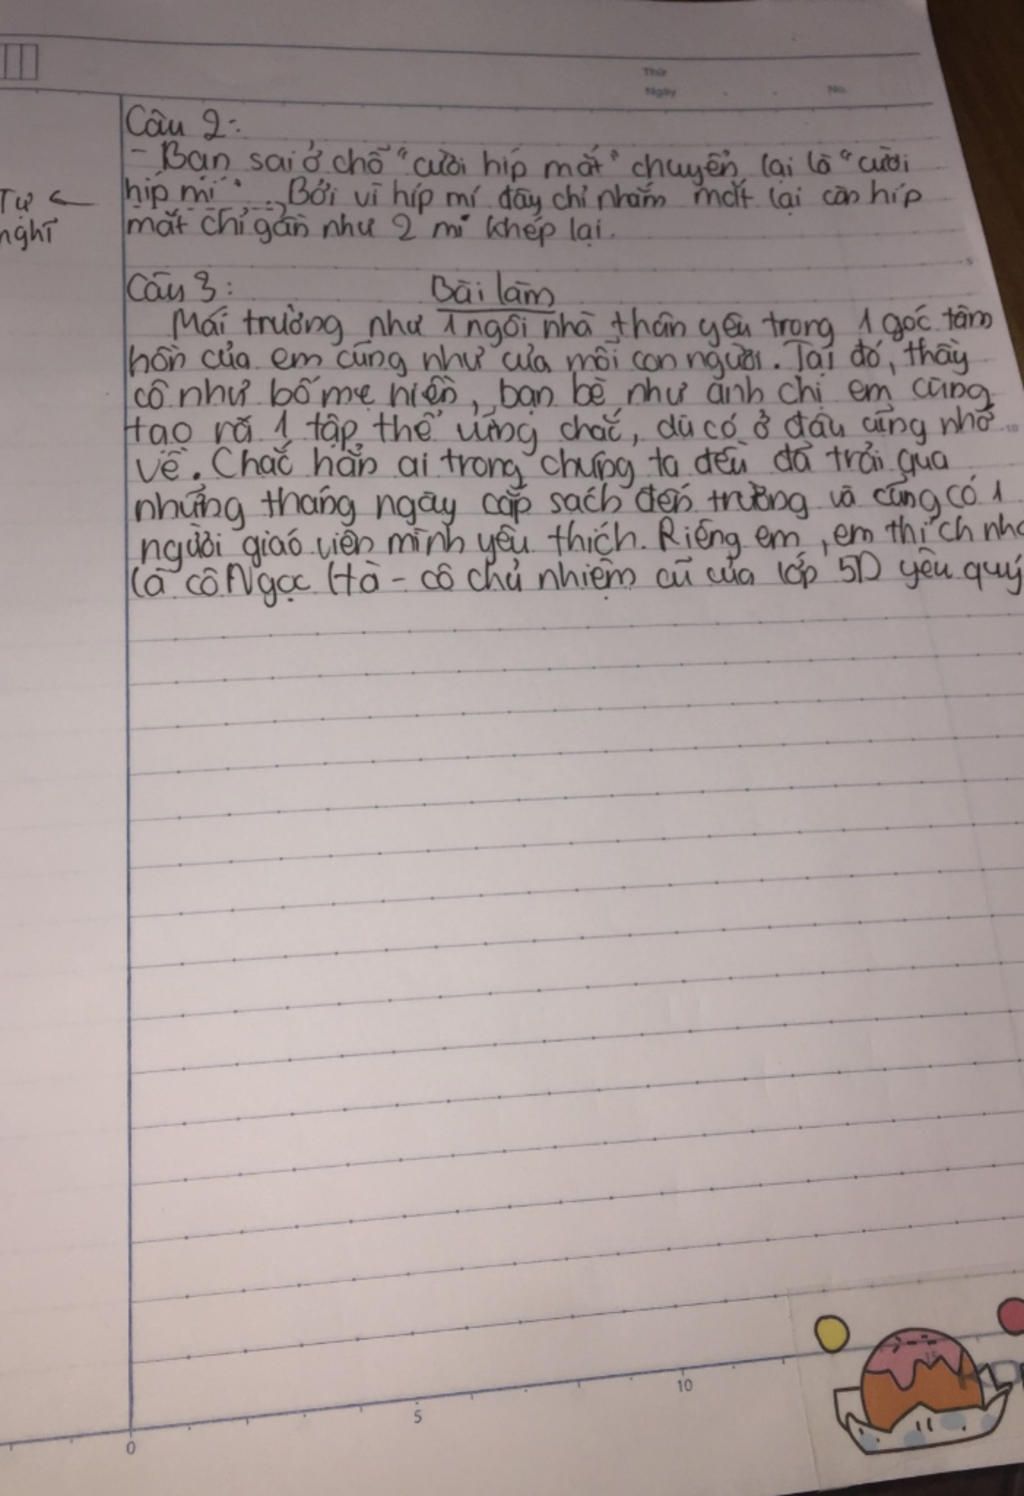 Thứ
Ngày . . No.
Câu 2:
- Bạn sai ở chỗ "cười híp mắt" chuyển lại là "cười
híp mí". Bởi vì híp mí đây chỉ nhắm mắt lại còn híp
mắt chỉ gần như 2 mí khép lại.
Tự ←
nghĩ
Câu 3: Bài làm
Mái trường như 1 ngôi nhà thân yêu trong 1 góc tâm
hồn của em cũng như của mỗi con người. Tại đó, thầy
cô như bố mẹ hiền, bạn bè như anh chị em cùng
tạo ra 1 tập thể vững chắc, dù có ở đâu cũng nhớ
về. Chắc hẳn ai trong chúng ta đều đã trải qua
những tháng ngày cắp sách đến trường và cũng có 1
người giáo viên mình yêu thích. Riêng em, em thích nh
là cô Ngọc Hà - cô chủ nhiệm cũ của lớp 5D yêu quý
0 5 10 15